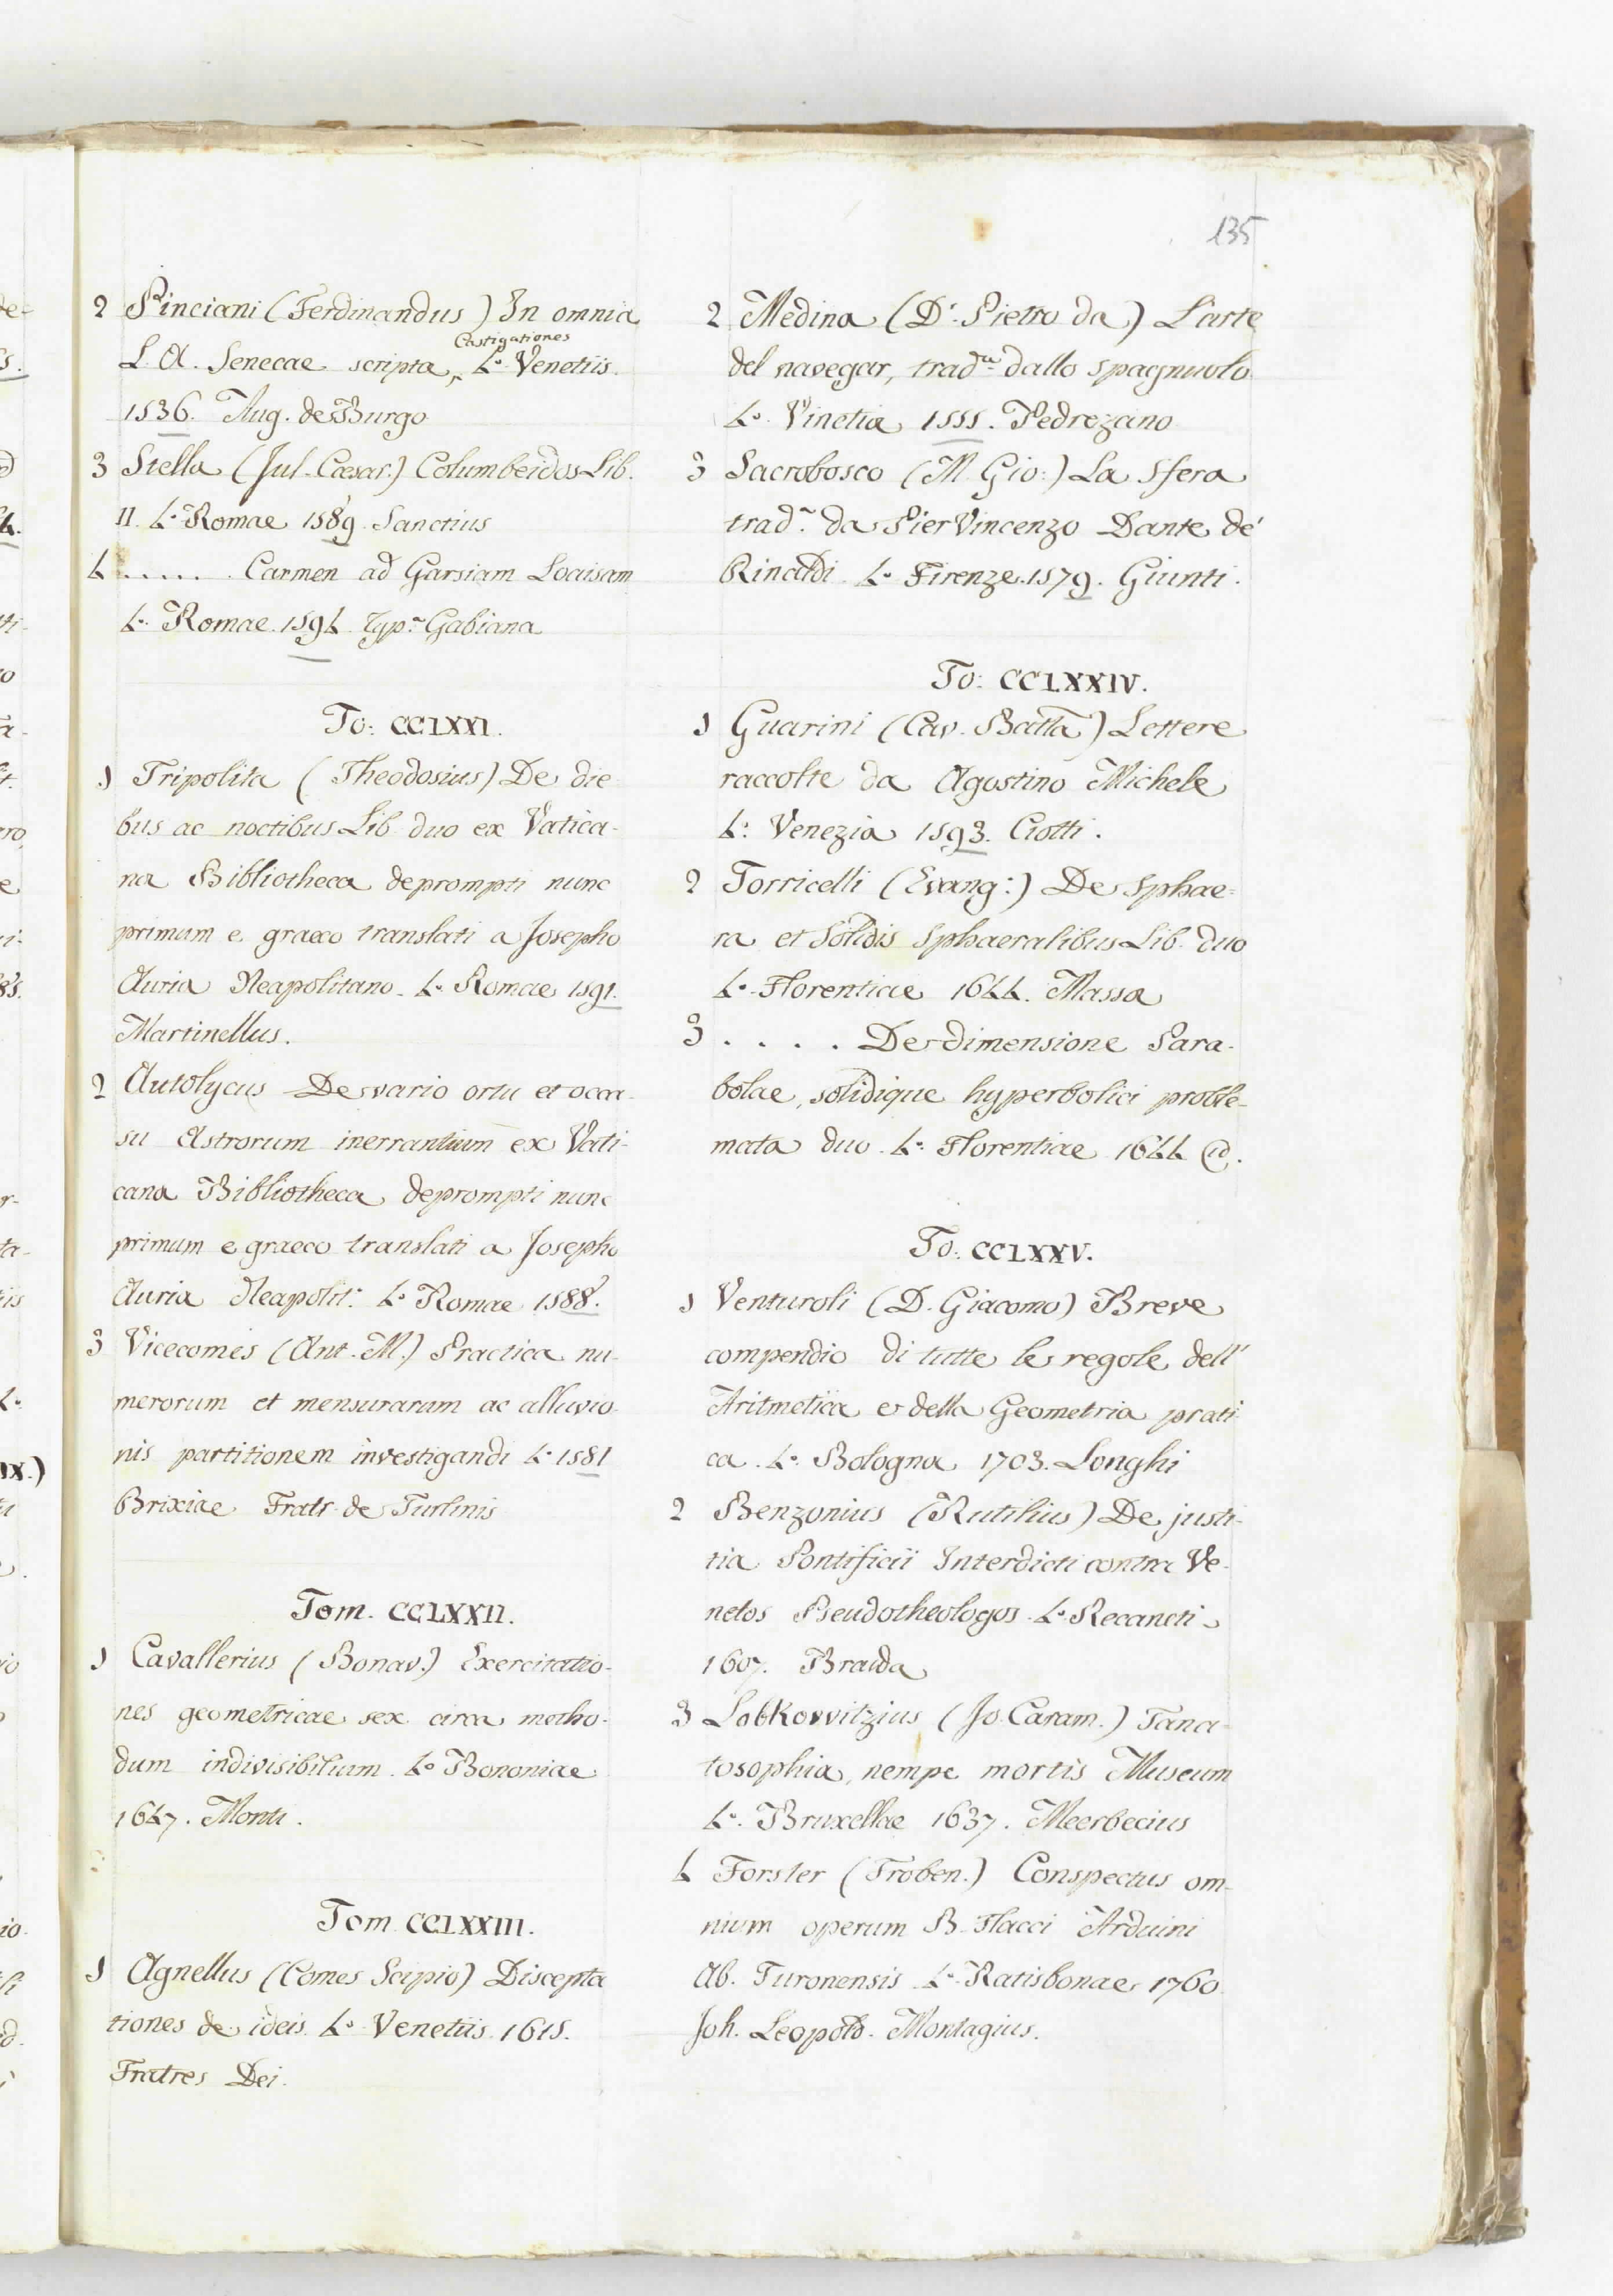 135
2 Pinciani (Ferdinandus) In omnia
Castigationes
L. A. Senecae scripta, 4.º Venetiis.
1536. Aug. de Burgo
3 Stella (Jul. Cæsar.) Columbeidos Lib.
II. 4.º Romae 1589. Sanctius
4 ..... Carmen ad Garsiam Loaisam
4.º Romae 1594 Typ.ª Gabiana
To: CCLXXI.
1 Tripolita (Theodosius) De die
bus ac noctibus Lib. duo ex Vatica-
na Bibliotheca deprompti nunc
primum e graeco translati a Josepho
Auria Neapolitano. 4.º Romae 1591.
Martinellus.
2 Autolycus De vario ortu et occa-
su Astrorum inerrantium ex Vati-
cana Bibliotheca deprompti nunc
primum e graeco translati a Josepho
Auria Neapolit. 4.º Romae 1588.
3 Vicecomes (Ant. M.) Practica nu-
merorum et mensurarum ac alluvio-
nis partitionem investigandi 4.º 1581
Brixiae Fratr. de Turlinis
Tom. CCLXXII.
1 Cavallerius (Bonav.) Exercitatio-
nes geometricae sex circa metho-
dum indivisibilium. 4.º Bononiae
1647. Monti.
Tom. CCLXXIII.
1 Agnellus (Comes Scipio) Discepta
tiones de ideis. 4.º Venetiis. 1615.
Fratres Dei.
2 Medina (D.r Pietro da) L'arte
del navegar, trad.ta dallo spagnuolo
4.º Vinetia 1555. Pedrezano
3 Sacrobosco (M. Gio:) La Sfera
trad.ª da Pier Vincenzo Dante de'
Rinaldi 4.º Firenze. 1579. Giunti.
To: CCLXXIV.
1 Guarini (Cav. Batta) Lettere
raccolte da Agostino Michele
4.º Venezia 1593. Ciotti.
2 Torricelli (Evang:) De Sphae=
ra et Solidis Sphaeralibus Lib. duo
4.º Florentiae 1644. Massa
3 .... De dimensione Para-
bolae, solidique hyperbolici proble-
mata duo. 4.º Florentiae 1644 id.
To: CCLXXV.
1 Venturoli (D. Giacomo) Breve
compendio di tutte le regole dell'
Aritmetica e della Geometria prati-
ca. 4.º Bologna 1703. Longhi
2 Benzonius (Rutilius) De justi-
tia Pontificii Interdicti contra Ve-
netos Pseudotheologos. 4.º Recaneti
1607. Braida
3 Lobkovvitzius (Jo. Caram.) Tana-
tosophia, nempe mortis Museum
4.º Bruxellae 1637. Meerbecius
4 Forster (Froben.) Conspectus om-
nium operum B. Flacci Arduini
Ab. Turonensis 4.º Ratisbonae 1760
Joh. Leopold. Montagius.